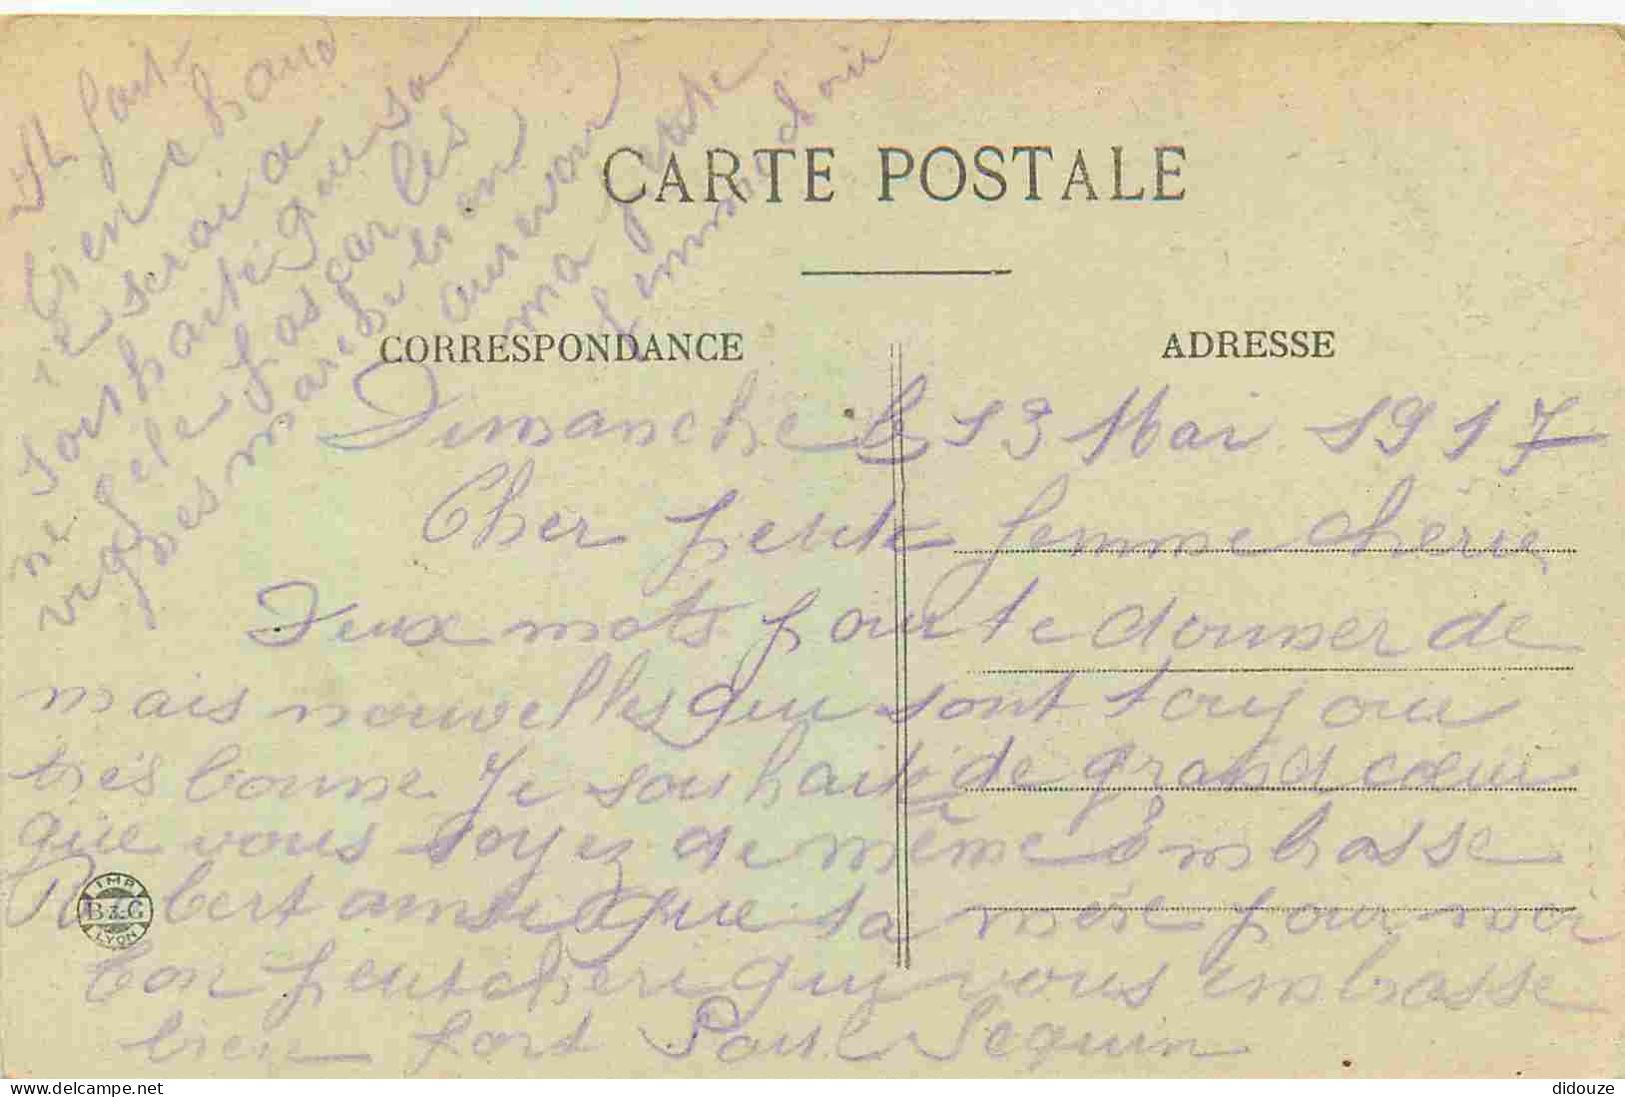 CARTE POSTALE
CORRESPONDANCE
ADRESSE
Dimanche le 13 Mai 1917
Cher petite femme chérie
Deux mots pour te donner de
mais nouvelles qui sont toujour
très bonne. Je souhaite de grand cœur
que vous soyez de même embrasse
Robert ainsi que ta mère pour moi
Ton petit cheri qui vous embrasse
bien fort Paul Seguin
IMP
B & G
LYON
Il fait
bien chaud
serai a
souhaité que sa
ne gele pas car les
vignes marche bien
aurevoir
ma petite
femme
didouze